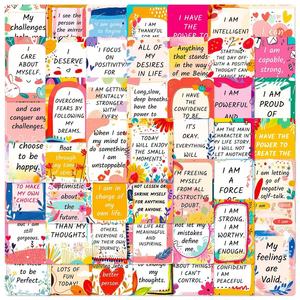 My
challenges
I see the
person
in the
mirror.
I AM
THANKFUL
FOR
I HAVE
THE
POWER TO
I AM
INTELLIGENT
STARTING
THE DAY OFF
WITH A
POSITIVE
THOUGHT CAN
I am
capable,
strong,
I CARE
ABOUT
MYSELF.
I
DESERVE
I FOCUS
ON
POSITIVITY
FOR
ALL OF
MY
DESIRES
IN LIFE
Anything
that stands
in the way
of me Being
and can
conquer any
challenges.
I
OVERCOME
FEARS BY
FOLLOWING
MY
DREAMS.
I AM GETTING
MENTALLY
STRONGER
EVERY
Long,slow,
deep
breaths
have the
power to
I HAVE
THE
CONFIDENCE
TO BE
I AM
POWERFUL
AND
I AM
PROUD
OF
I choose
to be
happy.
float
through
my
time
of
When I set
my mind to
do
something
I am
TODAY
I WILL
ENJOY
THE SMALL
MOMENTS
IT'S OK.
EVERYTHING
WILL
I AM THE MAIN
CHARACTER
OF MY STORY.
I WILL NOT
LET
ANOTHER
I HAVE
THE
POWER TO
CREATE
I am
letting go
of
negative
self-talk.
TO MAKE
MY OWN
CHOICES.
optimistic
about
future.
I am in
charge of
my own
life.
NOT LESSEN OR
SHRINK
MYSELF
FOR
ANYBODY
I AM
FREEING
MYSELF
FROM ALL
DESTRUCTIVE
DOUBT.
I AM
A
FORCE
THAN MY
THOUGHTS.
OTHERS.
EVERYONE IS
ON THEIR
OWN
IN LIFE ARE
MEANINGFUL
AND
INSPIRING.
not let my
mistakes
define
me.
I AM
STRONG.
I AM
WORTHY.
I AM
ENOUGH.
My
feelings
are
Valid.
to be
Perfect.
LOTS OF
FUN
TODAY!
better
person
my
thoughts.
ABOUT
THINGS I
CAN'T
CONTROL.
CONFIDENT
I AM
PEACEFUL